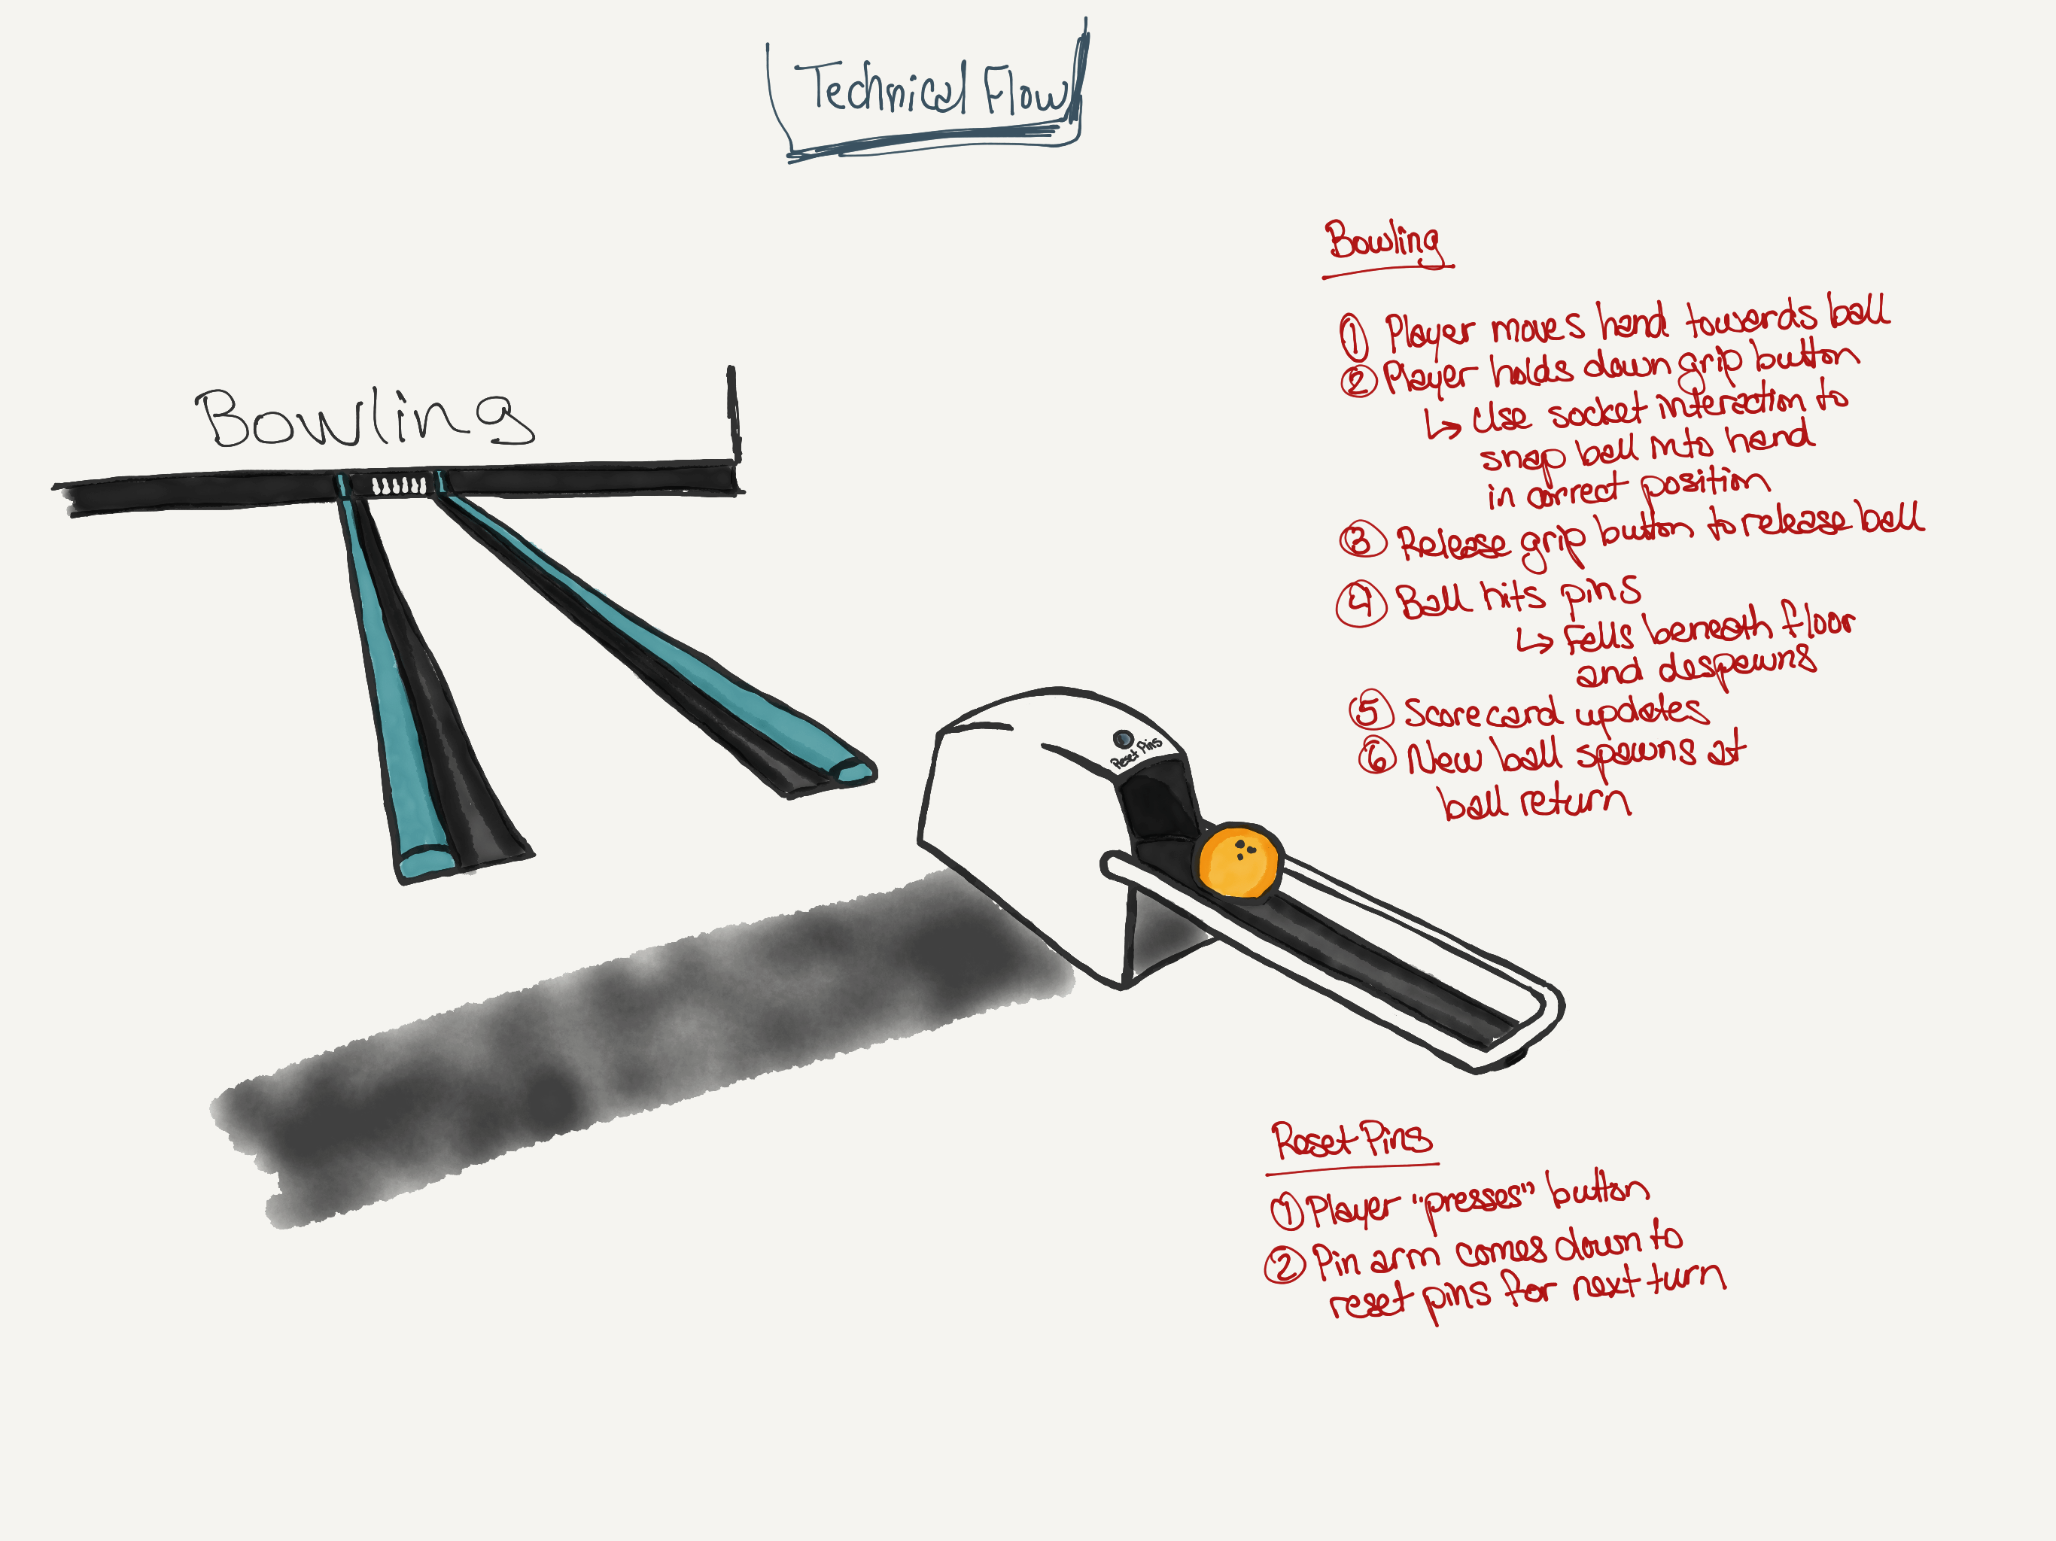 Technical Flow
Bowling
Bowling
① Player moves hand towards ball
② Player holds down grip button
↳ Use socket interaction to
snap ball into hand
in correct position
③ Release grip button to release ball
④ Ball hits pins
↳ Falls beneath floor
and despawns
⑤ Scorecard updates
⑥ New ball spawns at
ball return
Reset Pins
Reset Pins
① Player "presses" button
② Pin arm comes down to
reset pins for next turn